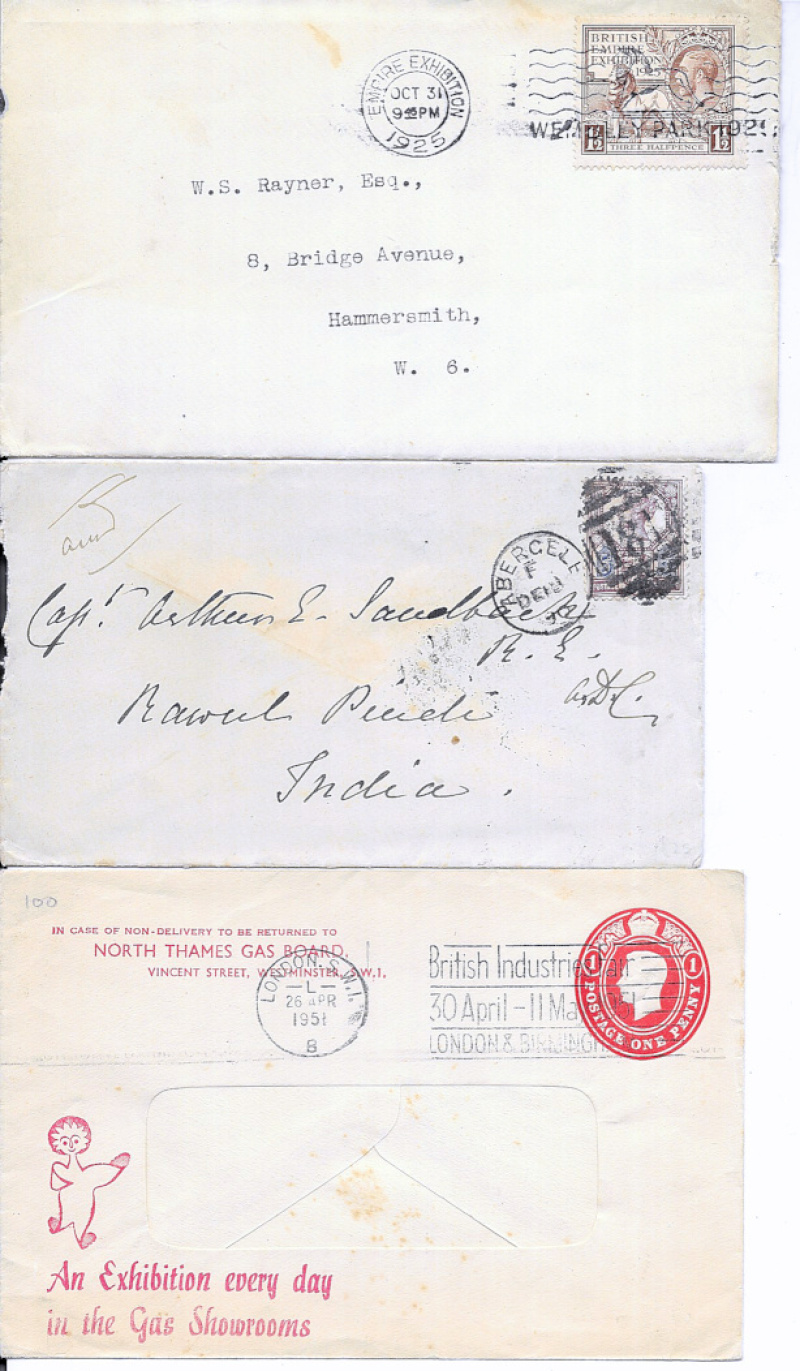 EMPIRE EXHIBITION
OCT 31
9 45 PM
1925
BRITISH
EMPIRE
EXHIBITION
1925
1½ THREE HALFPENCE 1½
WEMBLEY PARK 192
W.S. Rayner, Esq.,
8, Bridge Avenue,
Hammersmith,
W. 6.
ABERGELE
F
DE 18
181
Capt. Arthur E. Sandbach
R. E.
A.D.C.
Rawul Pindi
India.
100
IN CASE OF NON-DELIVERY TO BE RETURNED TO
NORTH THAMES GAS BOARD,
VINCENT STREET, WESTMINSTER, S.W.1,
LONDON. S.W.1.
-L-
26 APR
1951
8
British Industries Fair
30 April - 11 May 1951
LONDON & BIRMINGH
1 POSTAGE ONE PENNY 1
An Exhibition every day
in the Gas Showrooms